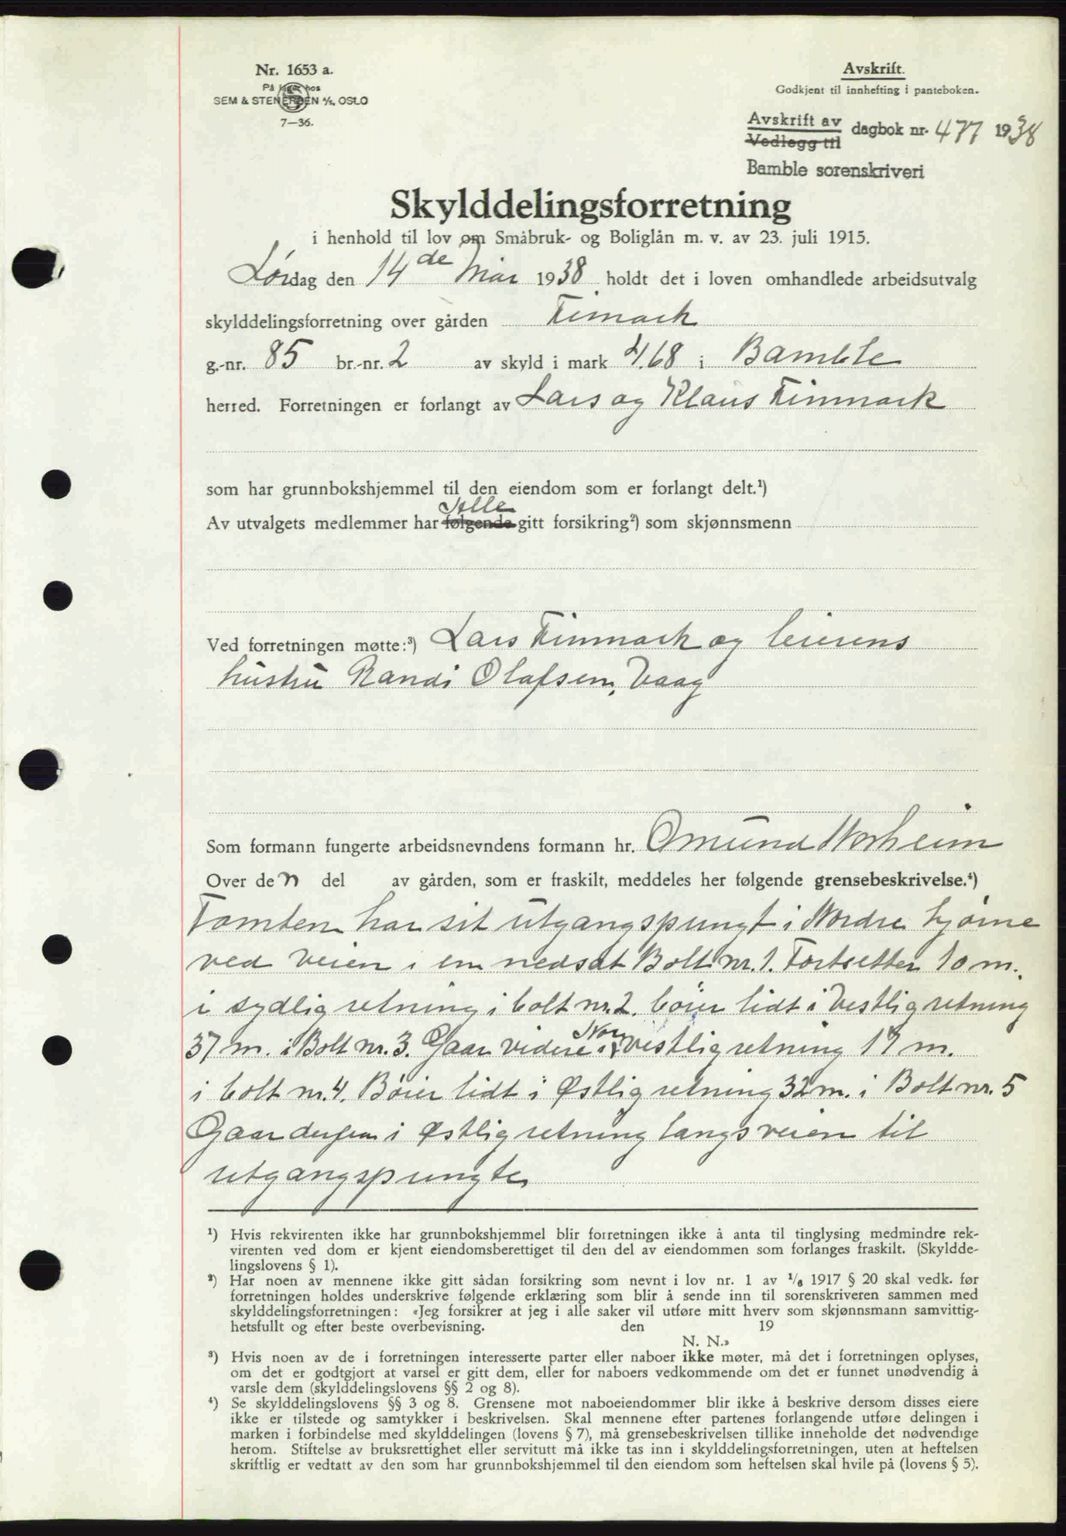 Nr. 1653 a.
På lager hos
SEM & STENERSEN A/S, OSLO
7—36.
Avskrift.
Godkjent til innhefting i panteboken.
Avskrift av
Vedlegg til
dagbok nr. 477 1938
Bamble sorenskriveri
Skylddelingsforretning
i henhold til lov om Småbruk- og Boliglån m. v. av 23. juli 1915.
Lørdag den 14de Mai 1938 holdt det i loven omhandlede arbeidsutvalg
skylddelingsforretning over gården Fimark
g.-nr. 85 br.-nr. 2 av skyld i mark 4.68 i Bamble
herred. Forretningen er forlangt av Lars og Klaus Finmark
som har grunnbokshjemmel til den eiendom som er forlangt delt.¹)
Alle
Av utvalgets medlemmer har følgende gitt forsikring²) som skjønnsmenn
Ved forretningen møtte:³) Lars Finmark og leierens
hustru Randi Olafsen, Vaag
Som formann fungerte arbeidsnevndens formann hr. Omund Norheim
Over den del av gården, som er fraskilt, meddeles her følgende grensebeskrivelse.⁴)
Tomten har sit utgangspungt i Nordre hjørne
ved veien i en nedsat Bolt nr. 1. Fortsetter 10 m.
i sydlig retning i bolt nr. 2. bøier lidt i Vestlig retning
37 m. i Bolt nr. 3. Gaar videre i Nor vestlig retning 19 m.
i bolt nr. 4. Bøier lidt i Østlig retning 32 m. i Bolt nr. 5
Gaar derfra i østlig retning langs veien til
utgangspungte
¹) Hvis rekvirenten ikke har grunnbokshjemmel blir forretningen ikke å anta til tinglysing medmindre rek-
virenten ved dom er kjent eiendomsberettiget til den del av eiendommen som forlanges fraskilt. (Skyldde-
lingslovens § 1).
²) Har noen av mennene ikke gitt sådan forsikring som nevnt i lov nr. 1 av 1/6 1917 § 20 skal vedk. før
forretningen holdes underskrive følgende erklæring som blir å sende inn til sorenskriveren sammen med
skylddelingsforretningen: «Jeg forsikrer at jeg i alle saker vil utføre mitt hverv som skjønnsmann samvittig-
hetsfullt og efter beste overbevisning. den 19
N. N.»
³) Hvis noen av de i forretningen interesserte parter eller naboer ikke møter, må det i forretningen oplyses,
om det er godtgjort at varsel er gitt dem, eller for naboers vedkommende om det er funnet unødvendig å
varsle dem (skylddelingslovens §§ 2 og 8).
⁴) Se skylddelingslovens §§ 3 og 8. Grensene mot naboeiendommer blir ikke å beskrive dersom disses eiere
ikke er tilstede og samtykker i beskrivelsen. Skal mennene efter partenes forlangende utføre delingen i
marken i forbindelse med skylddelingen (lovens § 7), må grensebeskrivelsen tillike inneholde det nødvendige
herom. Stiftelse av bruksrettighet eller servitutt må ikke tas inn i skylddelingsforretningen, uten at heftelsen
skriftlig er vedtatt av den som har grunnbokshjemmel til den eiendom som heftelsen skal hvile på (lovens § 5).